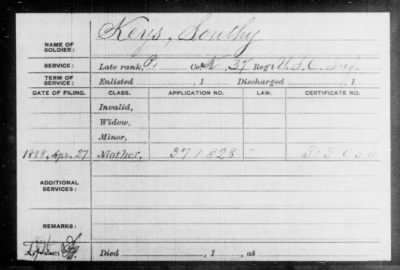 Keys, Southy
NAME OF SOLDIER:
SERVICE: Late rank, Co. K, 37 Reg't U.S.C. Inf.
TERM OF SERVICE: Enlisted , 1 Discharged , 1
DATE OF FILING. CLASS. APPLICATION NO. LAW. CERTIFICATE NO.
Invalid,
Widow,
Minor,
1888, Apr. 27. Mother, 371828 –
ADDITIONAL SERVICES:
REMARKS:
Died , 1 , at